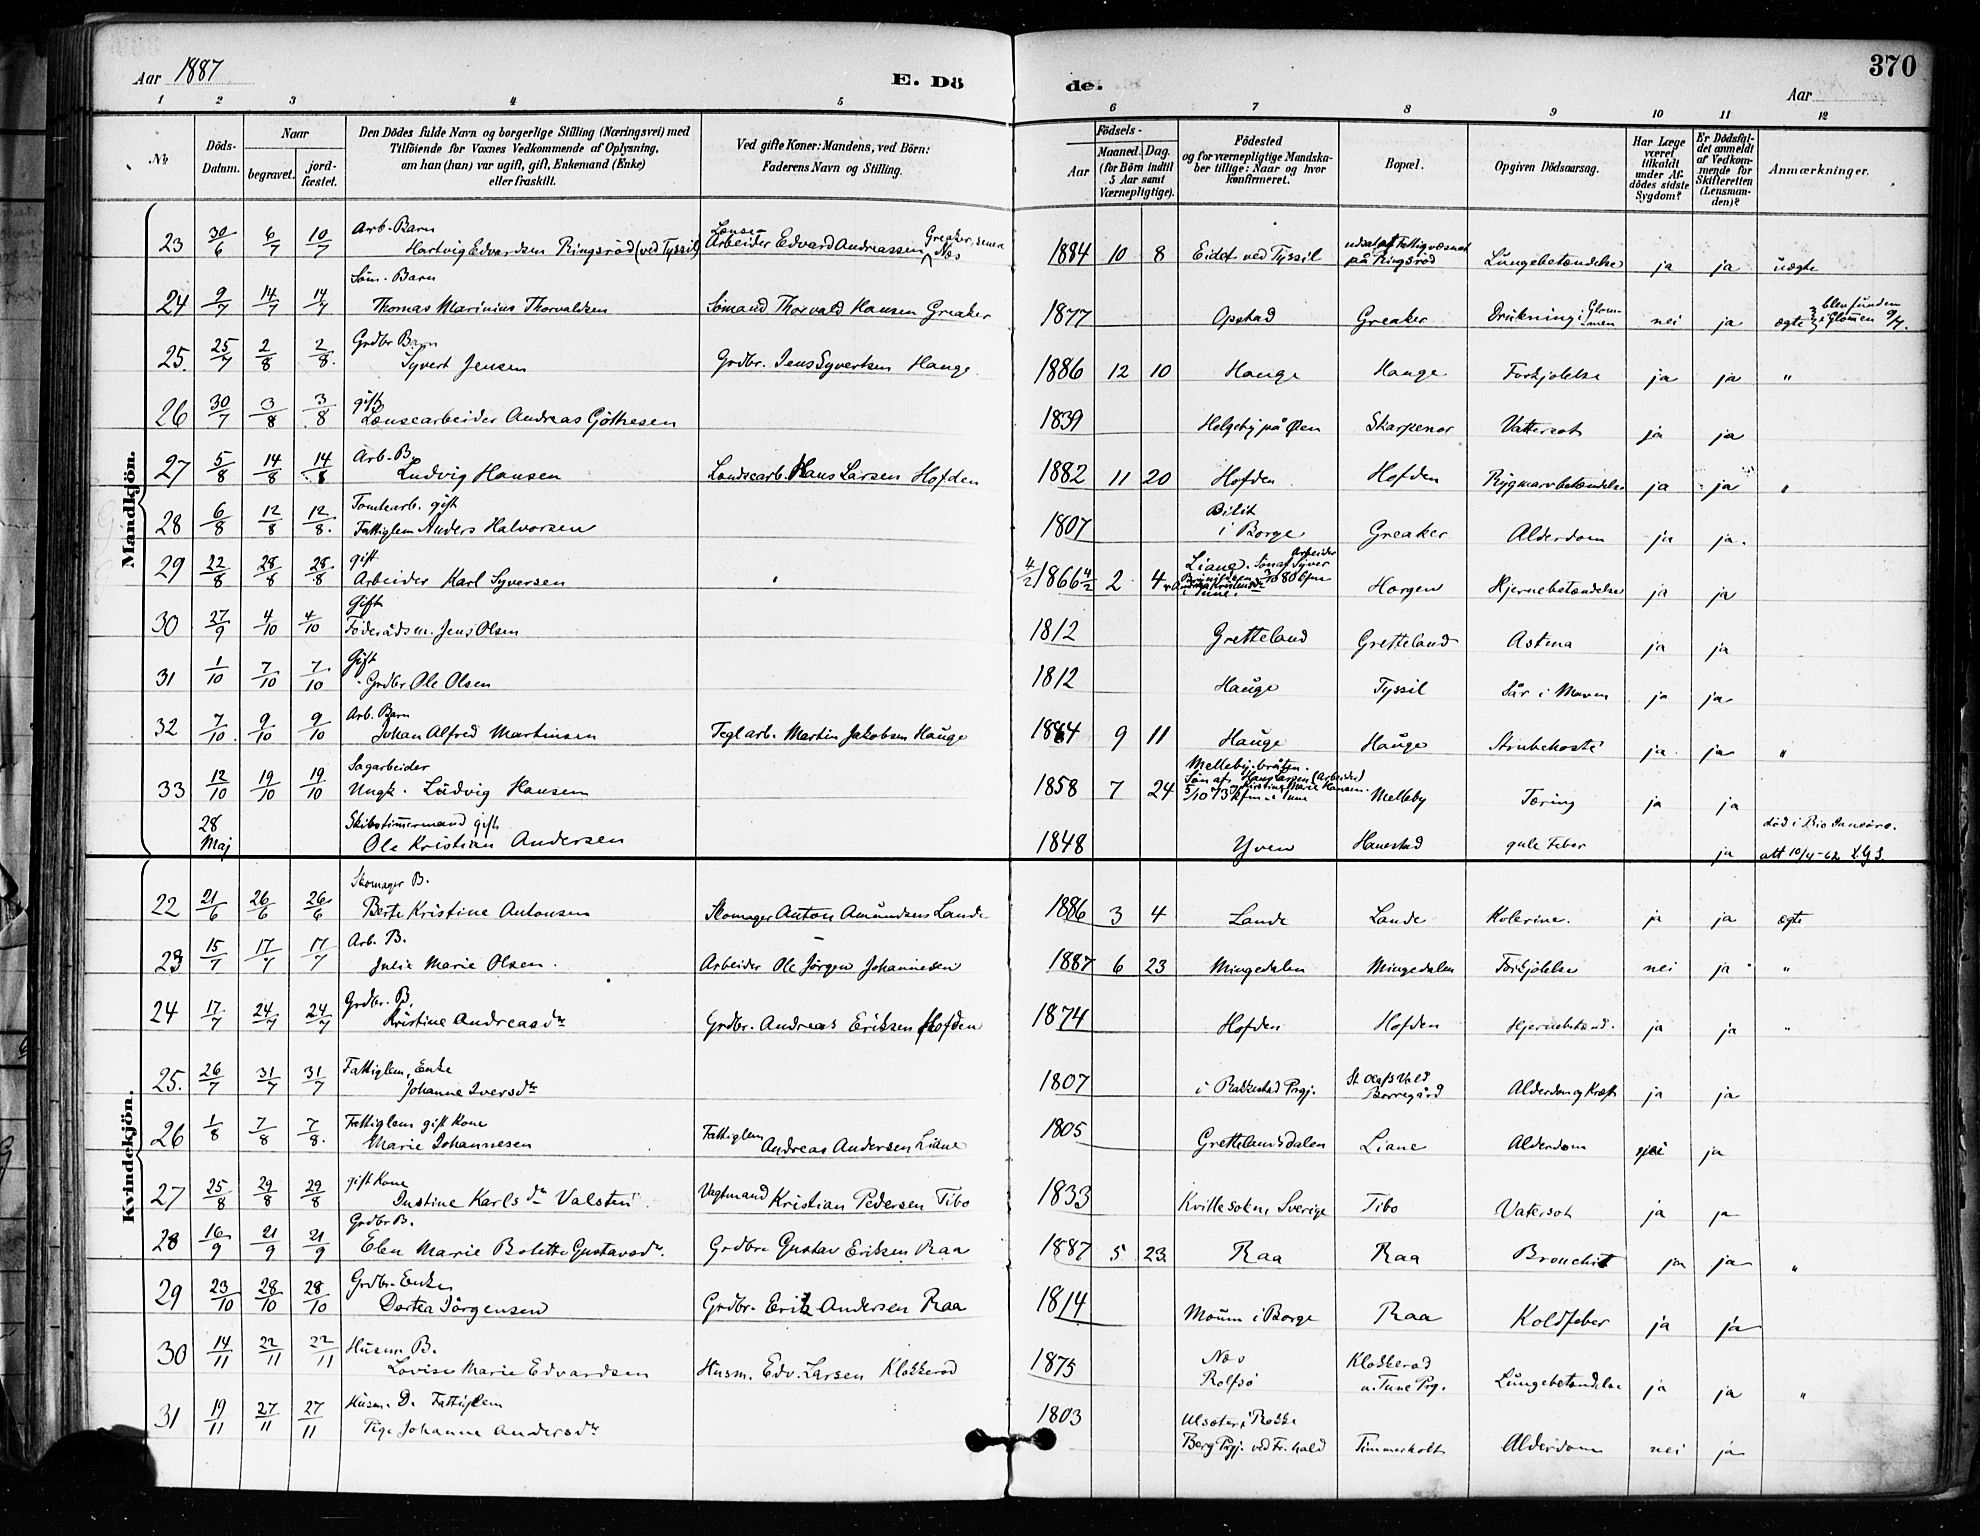 Aar 1887
E. Dö
de.
370
Aar
1 2 3 4 5 6 7 8 9 10 11 12
No
Döds-
Datum.
Naar
begravet.
jord-
fæstet.
Den Dödes fulde Navn og borgerlige Stilling (Næringsvei) med
Tilföiende for Voxnes Vedkommende af Oplysning,
om han (hun) var ugift, gift, Enkemand (Enke)
eller fraskilt.
Ved gifte Koner: Mandens, ved Börn:
Faderens Navn og Stilling.
Födsels-
Aar
Maaned.
Dag.
(for Börn indtil
5 Aar samt
Værnepligtige).
Födested
og for værnepligtige Mandska-
ber tillige: Naar og hvor
konfirmeret.
Bopæl.
Opgiven Dödsaarsag.
Har Læge
været
tilkaldt
under Af-
dödes sidste
Sygdom?
Er Dödsfal-
det anmeldt
af Vedkom-
mende for
Skifteretten
(Lensman-
den)?
Anmærkninger.
Mandkjön.
23 30/6 6/7 10/7 Arb. Barn
Hartvig Edvardsen Ringsröd (ved Tyssil) Lænse-
Arbeider Edvard Andreassen Greaker, senere Næs 1884 10 8 Eidet ved Tyssil udsat af Fattigvæsnet
på Ringsröd Lungebetændelse ja ja uægte
24 9/7 14/7 14/7 Söm. Barn
Thomas Marinius Thorvaldsen Sömand Thorvald Hansen Greaker 1877 Opstad Greaker Drukning i Glom-
men nei ja ægte blev funden
i Glomen 9/7.
25. 25/7 2/8 2/8. Grdbr Barn
Syvert Jensen Grdbr. Jens Syvertsen Hauge 1886 12 10 Hauge Hauge Forkjölelse ja ja "
26 30/7 3/8 3/8 gift
Lænsearbeider Andreas Göthesen 1839 Helgeby på Öen Skarpenor Vattersot ja ja
27 5/8 14/8 14/8 Arb. B.
Ludvig Hansen Landsearb. Hans Larsen Hofden 1882 11 20 Hofden Hofden Rygmarvbetændelse ja ja "
28 6/8 12/8 12/8. Tomtearb. gift
Fattiglem Anders Halvorsen 1807 Bilit
i Borge Greaker Alderdom ja ja.
29 22/8 28/8 28/8 gift
Arbeider Karl Syversen 4/2 1866 4/2 2 4 Liane. Sön af Arbeider Syver
Horgen Hjernebetændelse ja ja
30 27/9 4/10 4/10 Gift
Föderådsm. Jens Olsen 1812 Gretteland Gretteland Astma ja ja
31 1/10 7/10 7/10 Gift
Grdbr Ole Olsen 1812 Hauge Tyssil Sår i Maven ja ja
32 7/10 9/10 9/10 Arb. Barn
Johan Alfred Martinsen Teglarb. Martin Jakobsen Hauge 1884 9 11 Hauge Hauge Strubehoste ja ja "
33 12/10 19/10 19/10 Sagarbeider
Ungk. Ludvig Hansen 1858 7 24 Mellebybråten.
Sön af Hans Larsen (Arbeider)
5/10 73 kfm. i Tune Melleby Tæring ja ja
28
Maj Skibstimmermand gift
Ole Kristian Andersen 1848 Yven Hanestad gule Feber ja död i Rio Janeiro.
att 10/4-62 L.G.S.
Kvindekjön.
22 21/6 26/6 26/6 Skomager B.
Berte Kristine Antonsen Skomager Anton Amundsen Lande 1886 3 4 Lande Lande Kolerine. ja ja ægte
23 15/7 17/7 17/7 Arb. B.
Julie Marie Olsen. Arbeider Ole Jörgen Johannesen 1887 6 23 Mingedalen Mingedalen Forkjölelse nei ja "
24 17/7 24/7 24/7 Grdbr. B.
Kristine Andreasdtr Grdbr. Andreas Eriksen Hofden 1874 Hofden Hofden Hjernebetænd. ja ja "
25. 26/7 31/7 31/7 Fattiglem, Enke
Johanne Iversdtr 1807 i Rakkestad Prgj. St Olafs Vold
Borregård Alderdom og Kræft ja ja
26 1/8 7/8 7/8. Fattiglem gift Kone
Marie Johannesen Fattiglem
Andreas Andersen Liane 1805 Grettelandsdalen Liane Alderdom nei ja
27 25/8 29/8 29/8 gift Kone
Justine Karlsdtr Valsten Vagtmand Kristian Pedersen Tibo 1833 Kville sokn, Sverige Tibo Vatersot ja ja
28 16/9 21/9 21/9 Grdbr B.
Elen Marie Bolette Gustavsdr. Grdbr. Gustav Eriksen Raa 1887 5 23 Raa Raa Bronchit ja ja "
29 23/10 28/10 28/10 Grdbr. Enke
Dortea Jörgensen Grdbr. Erik Andersen Raa 1814 Moum i Borge Raa Koldfeber ja ja
30 14/11 22/11 22/11 Husm. B.
Lovise Marie Edvardsen Husm. Edv. Larsen Klokkerød 1875 Næs
Rolfsö Klokkerød
u. Tune Prg. Lungebetændelse ja ja "
31 19/11 27/11 27/11 Husm. D. Fattiglem
Pige Johanne Andersdtr 1803 Ulsæter i Rokke
Berg Prgj. ved Fr.hald Timmerholt Alderdom nei ja